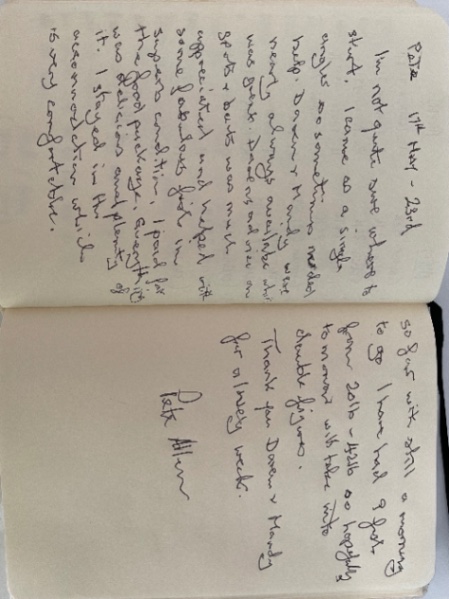 Pete 17th May - 23rd
I'm not quite sure where to
start. I came as a single
angler so sometimes needed
help. Daren & Mandy were
nearly always available which
was great. Daren's advice on
spots & baits was much
appreciated and helped with
some fabulous fish in
superb condition. I paid for
the food package, everything
was delicious and plenty of
it. I stayed in the
accommodation which
is very comfortable.
so far with still a morning
to go I have had 9 fish
from 20lb - 42lb so hopefully
tomorrow will take into
double figures.
Thank you Daren & Mandy
for a lovely week.
Pete Allen